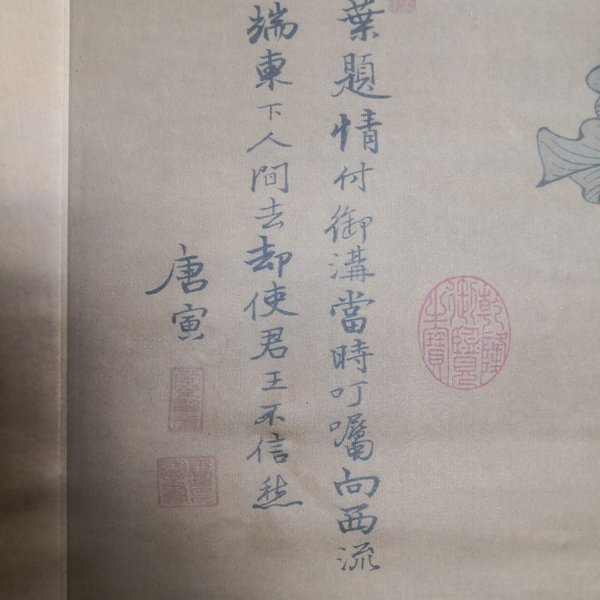 乾隆御覽之寶
葉題情付御溝當時叮囑向西流
端東下人間去却使君王不信愁
唐寅